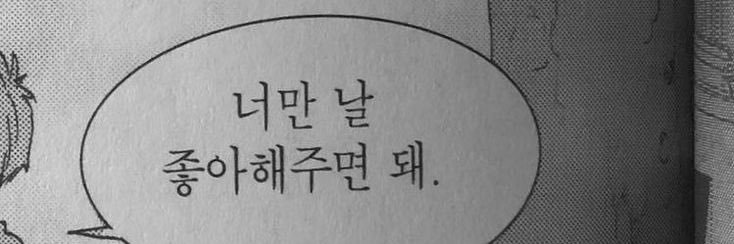 너만 날
좋아해주면 돼.